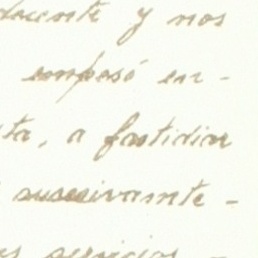 docente y nos
empesó en-
ta, a fastidiar
susecivamte-
servicios